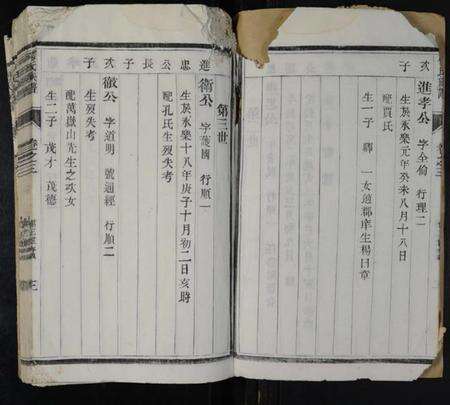 次子
進孝公 字全倫 行理二
生於永樂元年癸未八月十八日
配賈氏
生一子 鐸 一女適郡庠生楊日章
第三世
進忠公長子
衛公 字護國 行順一
生於永樂十八年庚子十月初二日亥時
配孔氏生歿失考
次子
徽公 字道明 號迴經 行順二
生歿失考
配萬嶽山先生之次女
生二子 茂才 茂德
卷之三
三